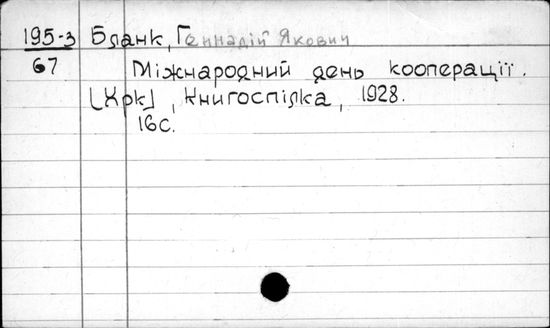 195-3 Бланк, Геннадій Якович
67 Міжнародний день кооперації.
[Хрк], Книгоспілка, 1928.
16с.